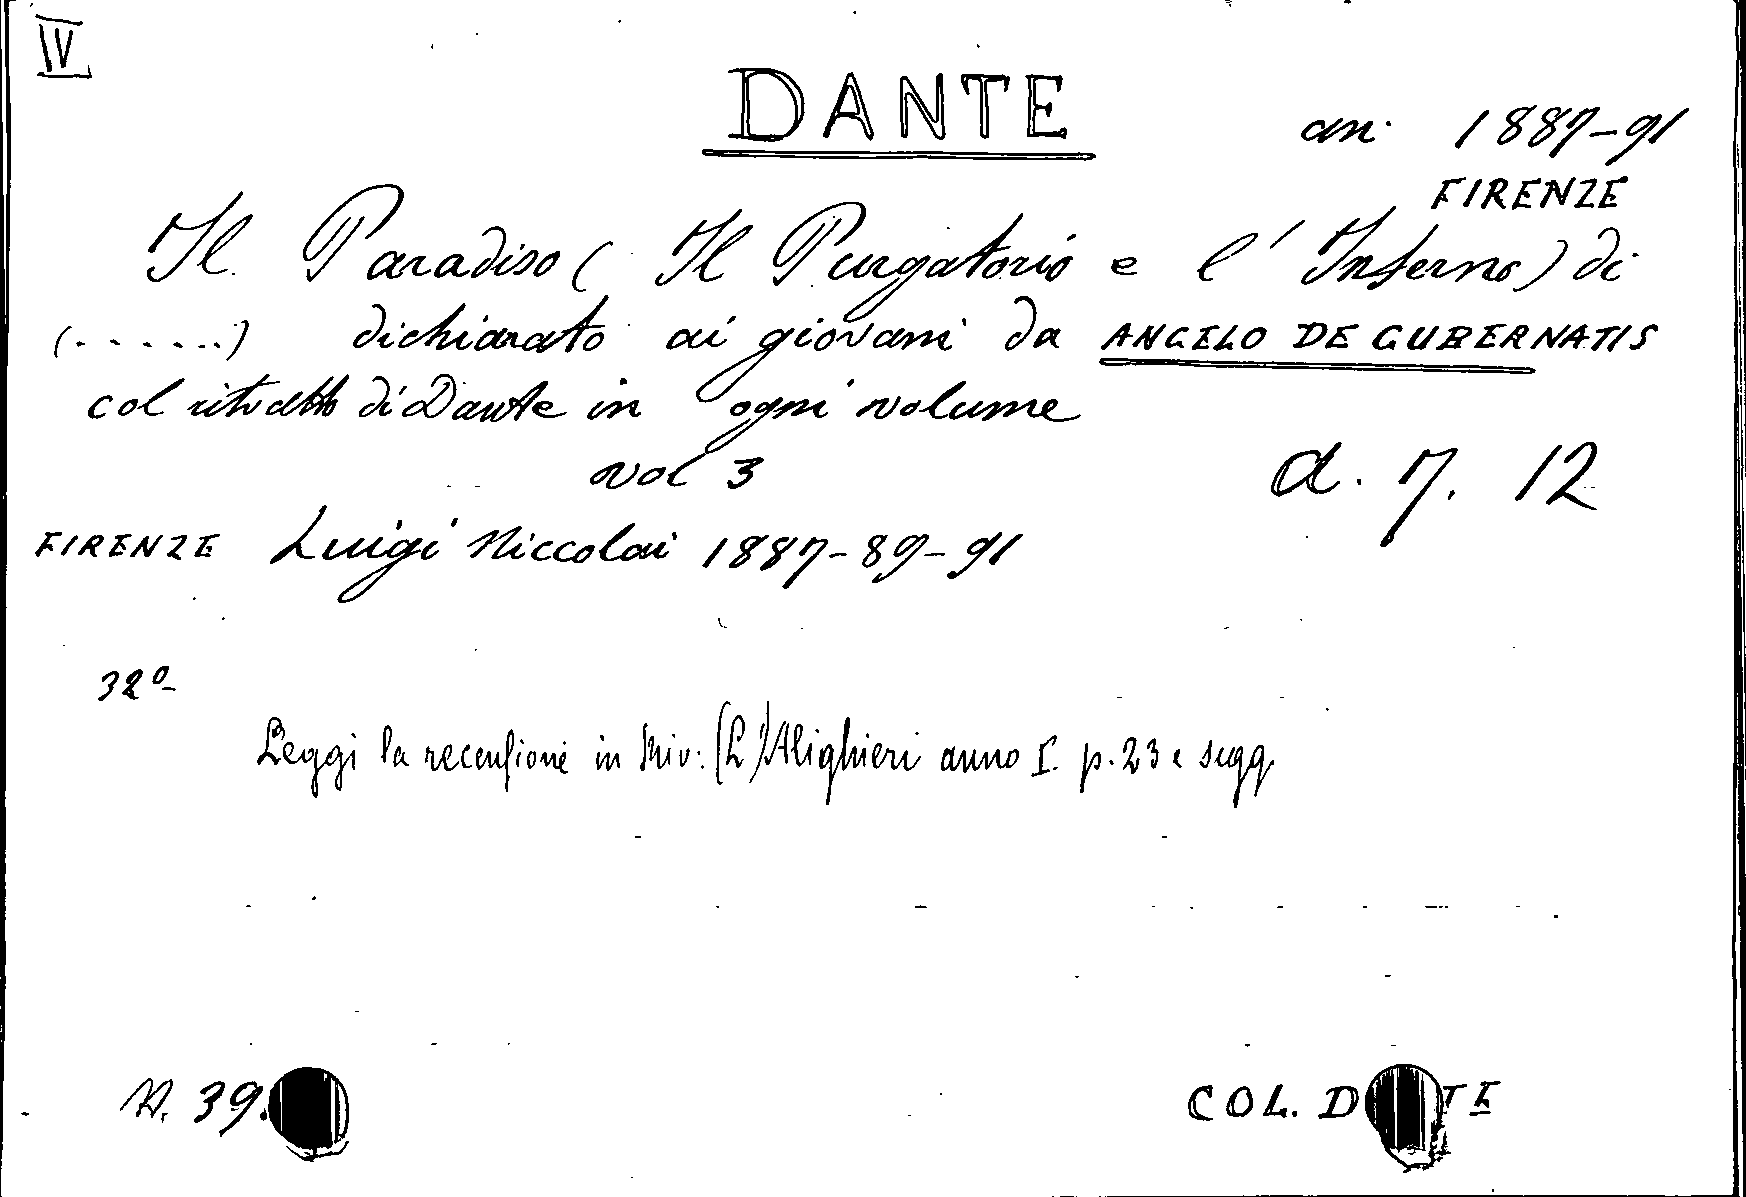 IV
DANTE
an. 1887-91
FIRENZE
Il Paradiso ( Il Purgatorio e l' Inferno) di
(......) dichiarato ai giovani da ANGELO DE GUBERNATIS
col ritratto di Dante in ogni volume
vol 3
a. 7. 12
FIRENZE Luigi Niccolai 1887-89-91
32º
Leggi la recensione in Riv: (L')Alighieri anno I. p. 23 e segg.
N. 39.
COL. D TE